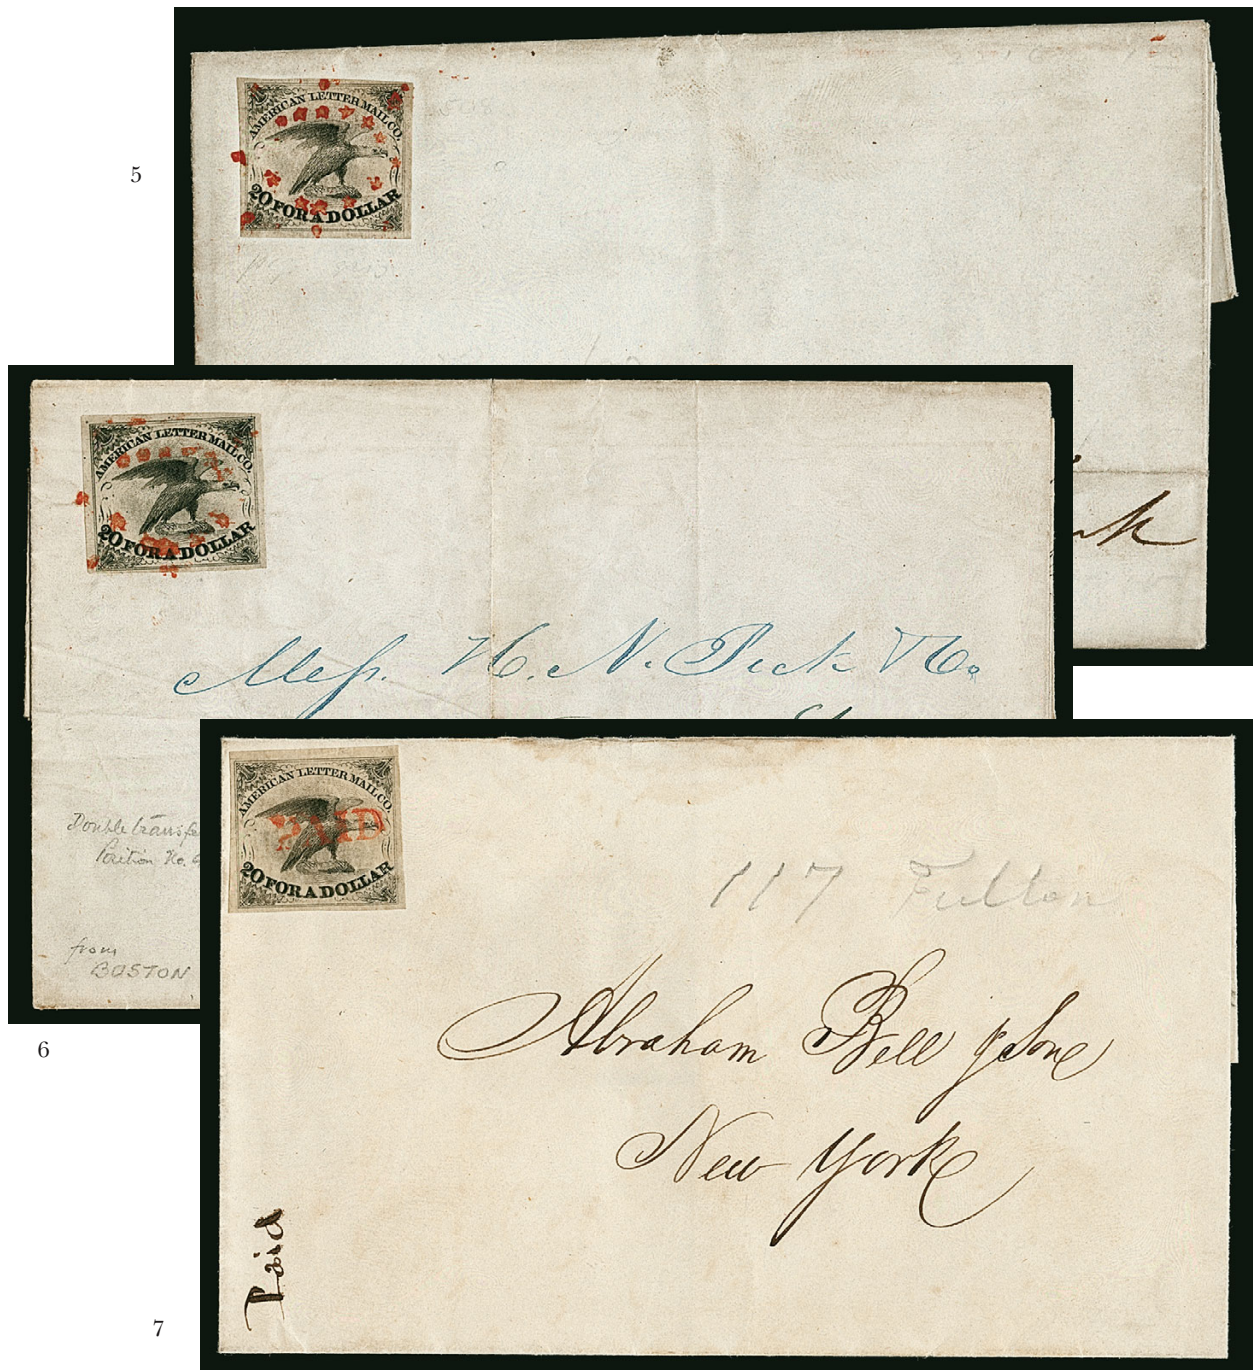 5
AMERICAN LETTER MAIL CO.
20 FOR A DOLLAR
AMERICAN LETTER MAIL CO.
20 FOR A DOLLAR
Mess. H. N. Peck & Co
Double transfe
Position No.
from
BOSTON
6
AMERICAN LETTER MAIL CO.
PAID
20 FOR A DOLLAR
117 Fulton
Abraham Bell & Sons
New York
Paid
7